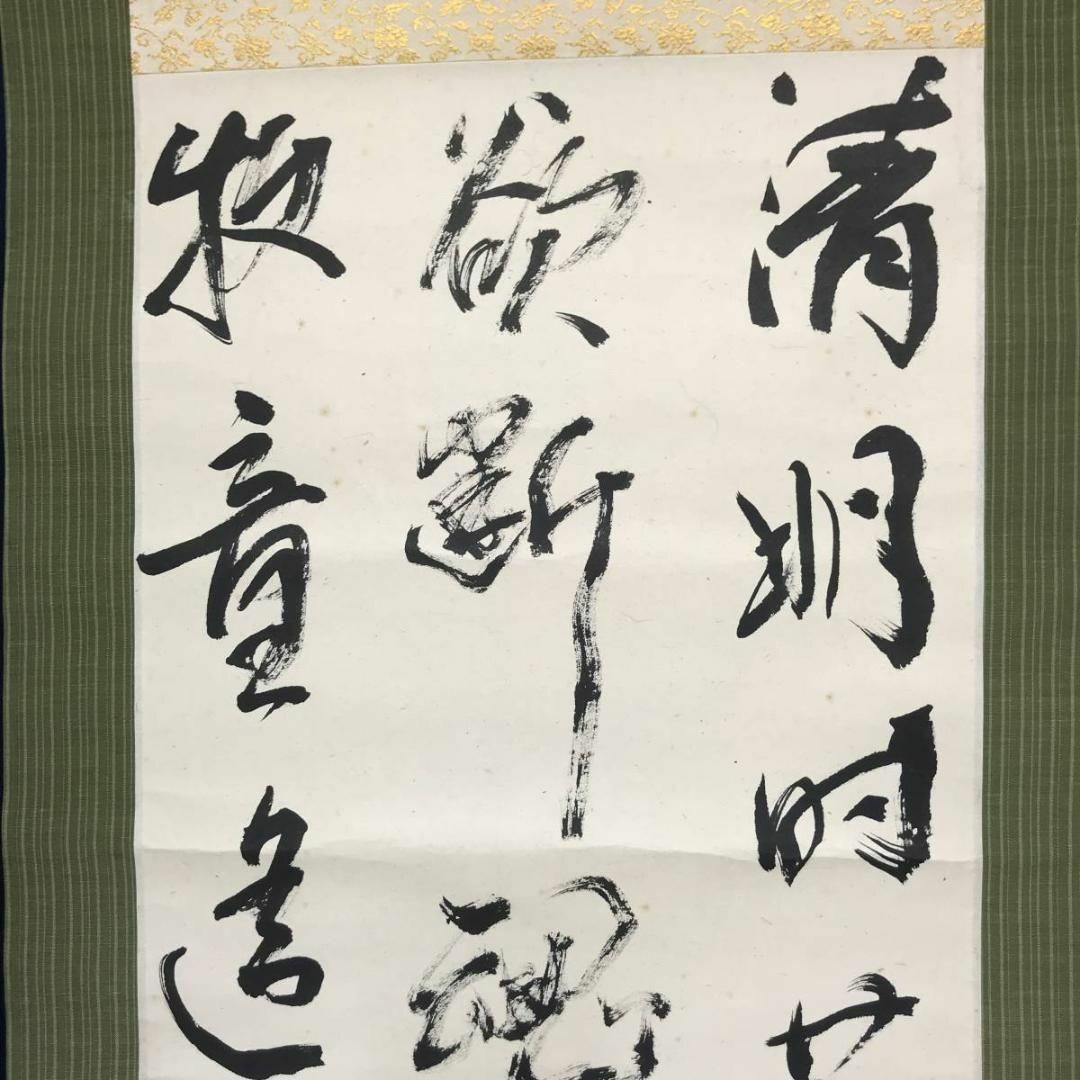 清明時
欲斷魂
牧童遙